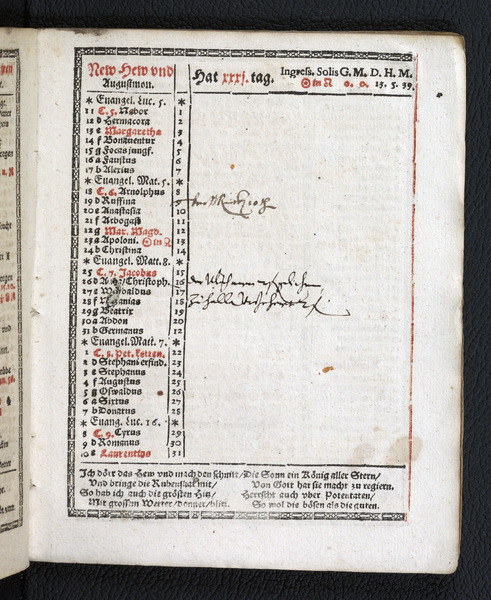 New Hew vnd
Augustmon.
Hat xxxj. tag.
Ingress. Solis G. M. D. H. M.
☉ in ♌ 0. 0. 13. 5. 39.
* Euangel. Luc. 5. *
11 C. 5. Nabor 1
12 d Hermacora 2
13 e Margaretha 3
14 f Bonauentur 4
15 g Focas jungf. 5
16 a Faustus 6
17 b Alexius 7
* Euangel. Mat. 5. *
18 C. 6. Arnolphus 8
19 d Ruffina 9
20 e Anastasia 10
21 f Arbogast 11
22 g Mar. Magd. 12
23 a Apoloni. ☉ in ♌ 13
24 b Christina 14
* Euangel. Matt. 8. *
25 C. 7. Jacobus 15
16
17
18
29 g Beatrix 19
30 a Abdon 20
31 b Germanus 21
* Euangel. Matt. 7. *
1 C. 8. Pet. ketten. 22
2 d Stephani erfind. 23
3 e Stephanus 24
4 f Augustus 25
5 g Oswaldus 26
6 a Sixtus 27
7 b Donatus 28
* Euang. Luc. 16. *
8 C. 9. Cyrus 29
9 d Romanus 30
10 e Laurentius 31
Ich dörr das Hew vnd mach den schnitt /
Vnd bringe die
So hab ich auch die grösten Hitz /
Mit grossem Wetter / donner / blitz.
Die Sonn ein König aller Stern /
Von Gott hat sie macht zu regiern.
Herrscht auch vber Potentaten /
So wol die bösen als die guten.